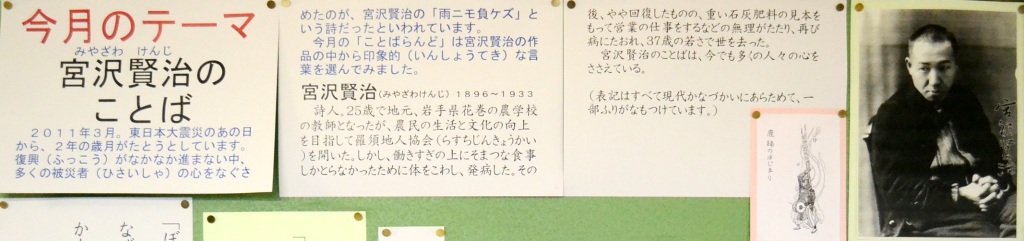 今月のテーマ
みやざわ けんじ
宮沢賢治の
ことば
２０１１年３月。東日本大震災のあの日
から、２年の歳月がたとうとしています。
復興（ふっこう）がなかなか進まない中、
多くの被災者（ひさいしゃ）の心をなぐさ
めたのが、宮沢賢治の「雨ニモ負ケズ」と
いう詩だったといわれています。
今月の「ことばらんど」は宮沢賢治の作
品の中から印象的（いんしょうてき）な言
葉を選んでみました。
宮沢賢治（みやざわけんじ）１８９６～１９３３
詩人。２５歳で地元、岩手県花巻の農学校
の教師となったが、農民の生活と文化の向上
を目指して羅須地人協会（らすちじんきょうかい
）を開いた。しかし、働きすぎの上にそまつな食事
しかとらなかったために体をこわし、発病した。その
後、やや回復したものの、重い石灰肥料の見本を
もって営業の仕事をするなどの無理がたたり、再び
病にたおれ、３７歳の若さで世を去った。
宮沢賢治のことばは、今でも多くの人々の心を
ささえている。
（表記はすべて現代かなづかいにあらためて、一
部ふりがなもつけています。）
鹿踊りのはじまり
「ば
な
か